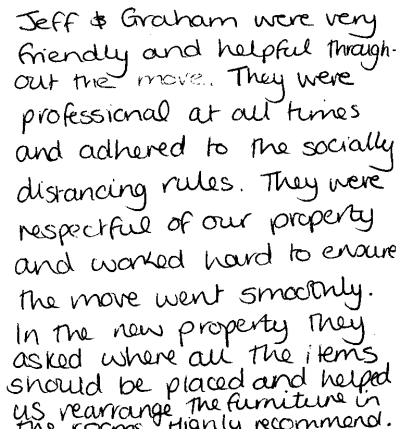 Jeff & Graham were very
friendly and helpful through-
out the move. They were
professional at all times
and adhered to the socially
distancing rules. They were
respectful of our property
and worked hard to ensure
the move went smoothly.
In the new property they
asked where all the items
should be placed and helped
us rearrange the furniture in
the rooms. Highly recommend.